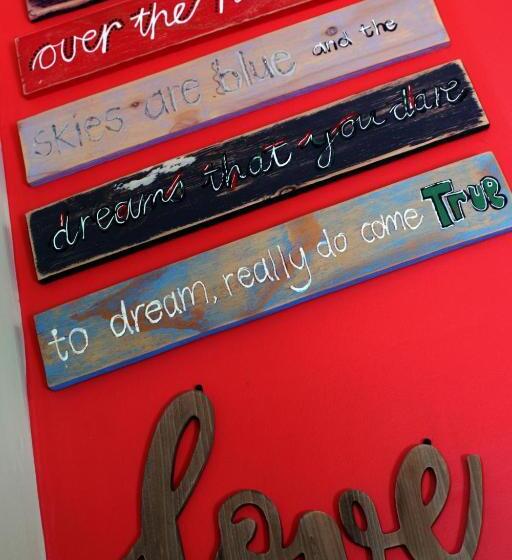 over the
skies are blue and the
dreams that you dare
to dream, really do come True
love